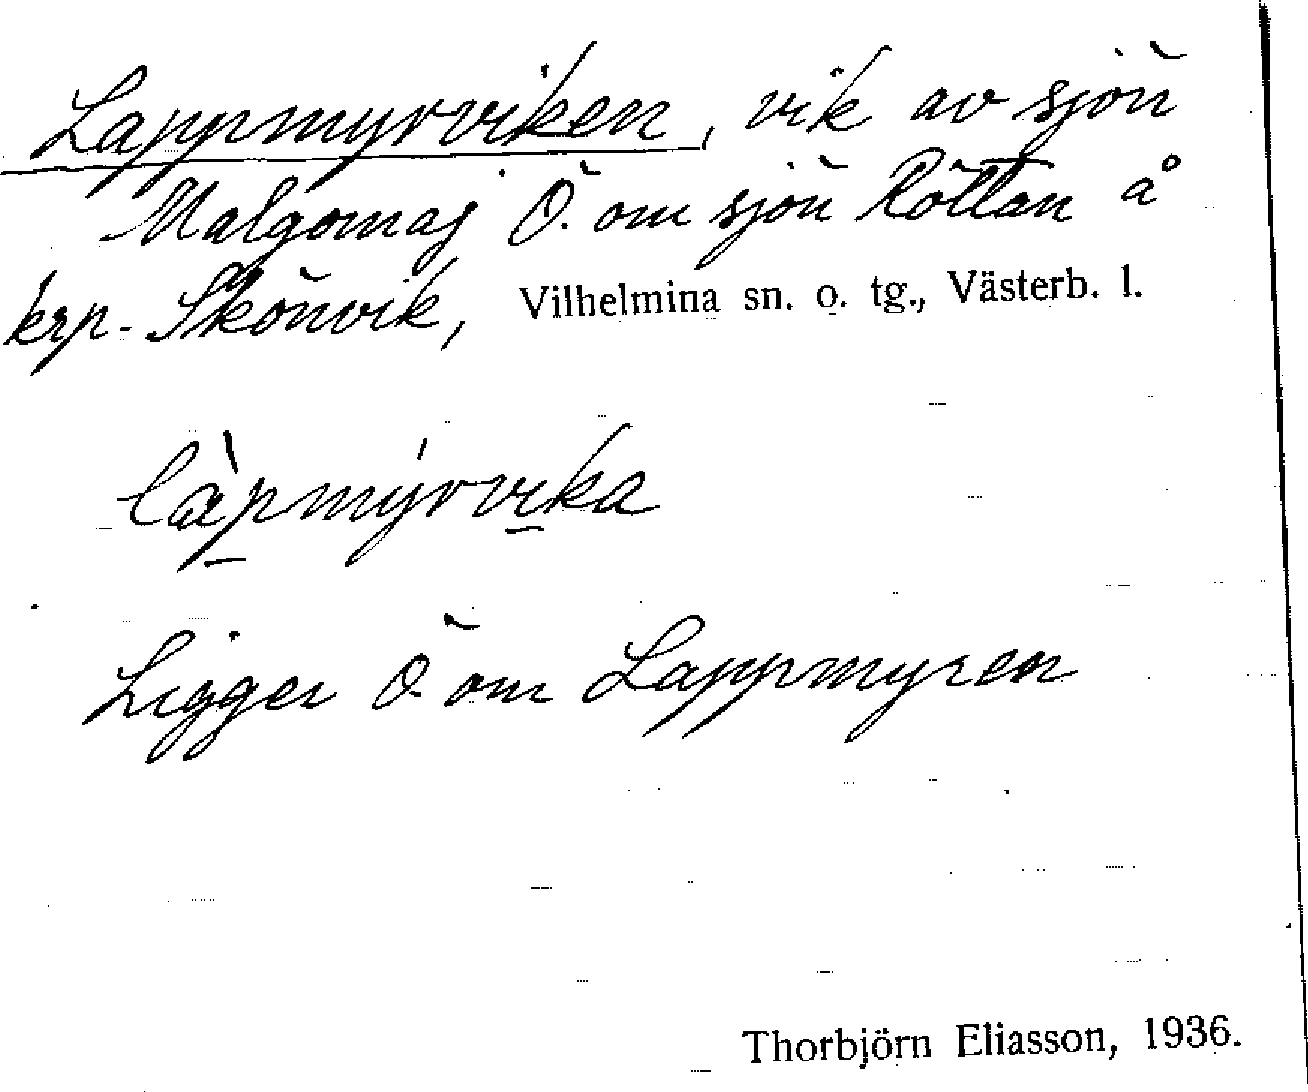 Lappmyrviken, vik av sjön
Malgomaj Ö. om sjön Röttan å
krp. Skönvik, Vilhelmina sn. o. tg., Västerb. l.
làpmýrvika
Ligger Ö om Lappmyren
Thorbjörn Eliasson, 1936.